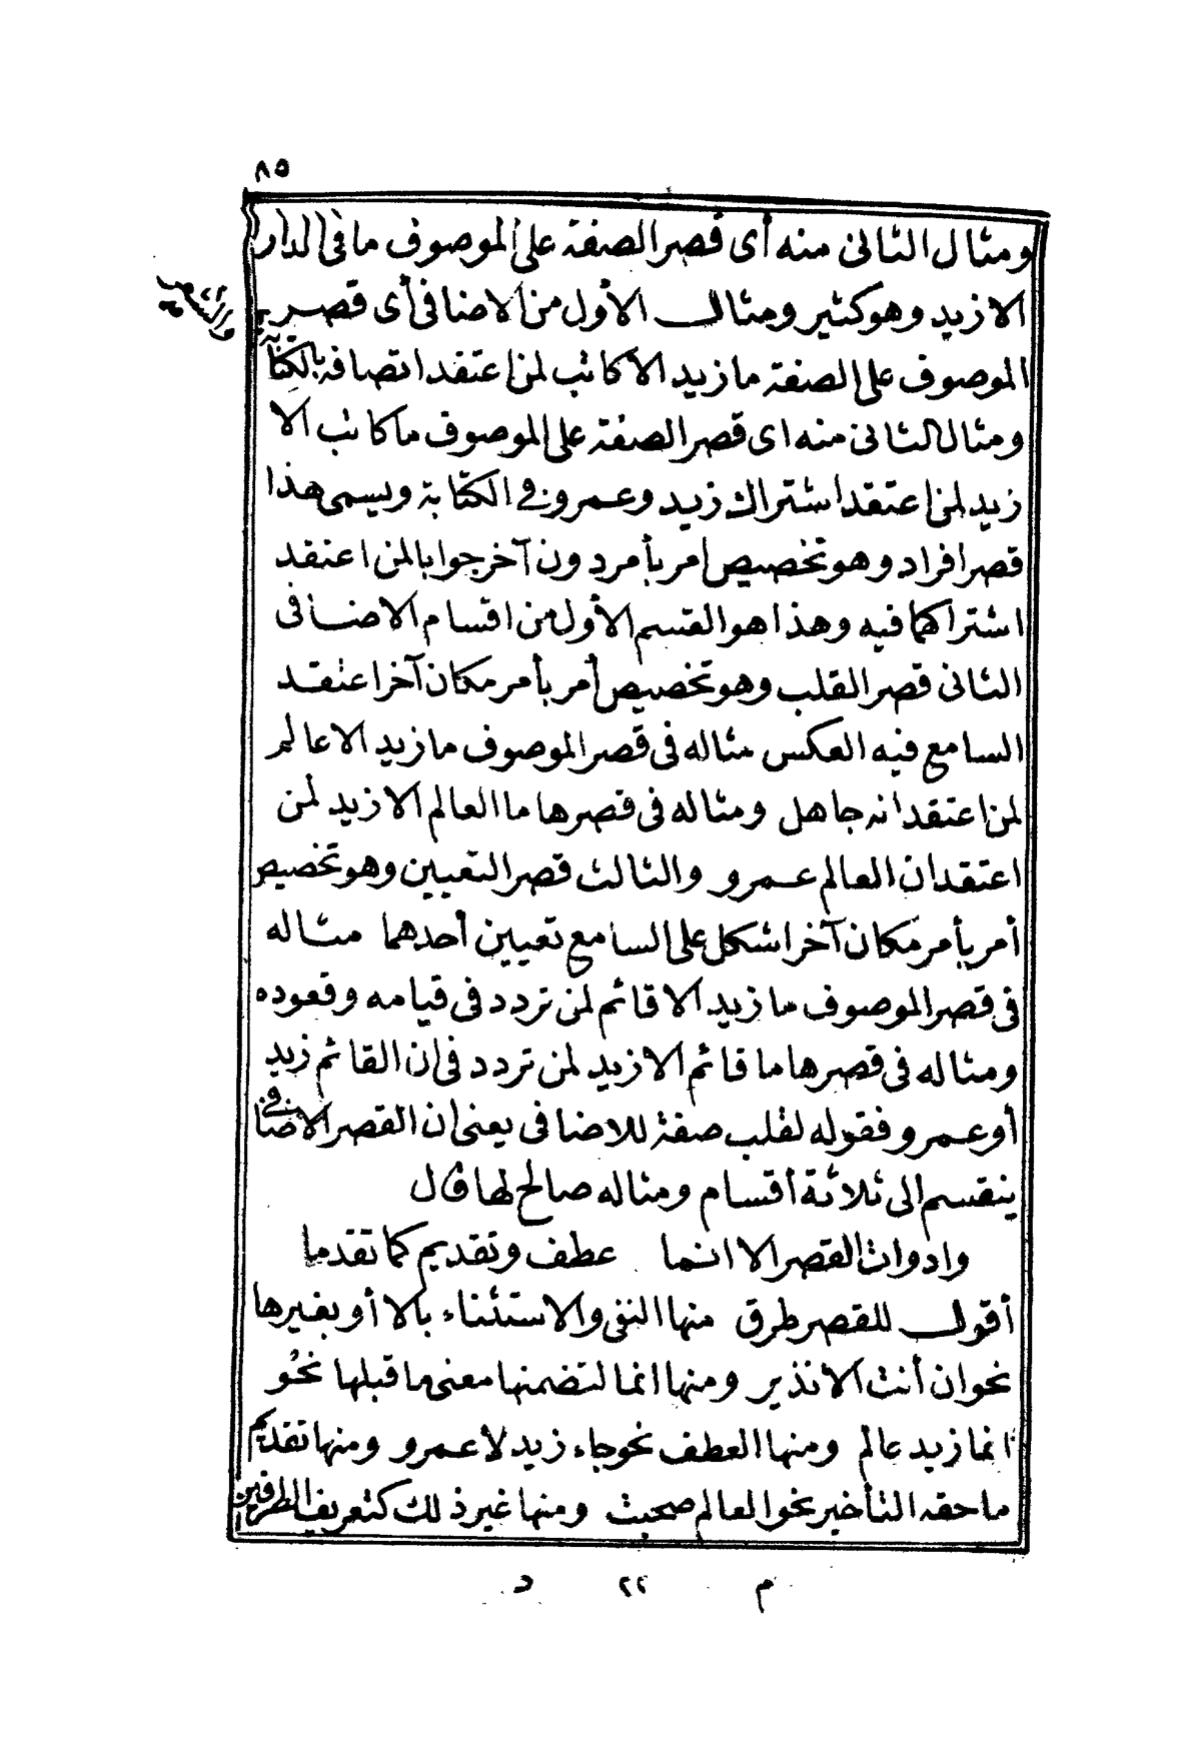 ٨٥
ومثال الثانى منه أى قصر الصفة على الموصوف ما فى الدار
الا زيد وهو كثير ومثال الأول من الاضافى أى قصر
الموصوف على الصفة ما زيد الا كاتب لمن اعتقد اتصافه بالكتابة
ومثال الثانى منه اى قصر الصفة على الموصوف ما كاتب الا
زيد لمن اعتقد اشتراك زيد وعمرو فى الكتابة ويسمى هذا
قصر افراد وهو تخصيص امر بأمر دون آخر جوابا لمن اعتقد
اشتراكهما فيه وهذا هو القسم الأول من اقسام الاضافى
الثانى قصر القلب وهو تخصيص أمر بأمر مكان آخر اعتقد
السامع فيه العكس مثاله فى قصر الموصوف ما زيد الا عالم
لمن اعتقد انه جاهل ومثاله فى قصرها ما العالم الا زيد لمن
اعتقد ان العالم عمرو والثالث قصر التعيين وهو تخصيص
أمر بأمر مكان آخر اشكل على السامع تعيين أحدهما مثاله
فى قصر الموصوف ما زيد الا قائم لمن تردد فى قيامه وقعوده
ومثاله فى قصرها ما قائم الا زيد لمن تردد فى ان القائم زيد
أو عمرو فقوله لقلب صفة للاضافى يعنى ان القصر الاضافى
ينقسم الى ثلاثة أقسام ومثاله صالح لها قال
وادوات القصر الا انما عطف وتقديم كما تقدما
أقول للقصر طرق منها النفى والاستثناء بالا أو بغيرها
نحو ان أنت الا نذير ومنها انما لتضمنها معنى ما قبلها نحو
انما زيد عالم ومنها العطف نحو جاء زيد لا عمرو ومنها تقديم
ما حقه التأخير نحو العالم صحبت ومنها غير ذلك كتعريف الطرفين
م ٢٢ د